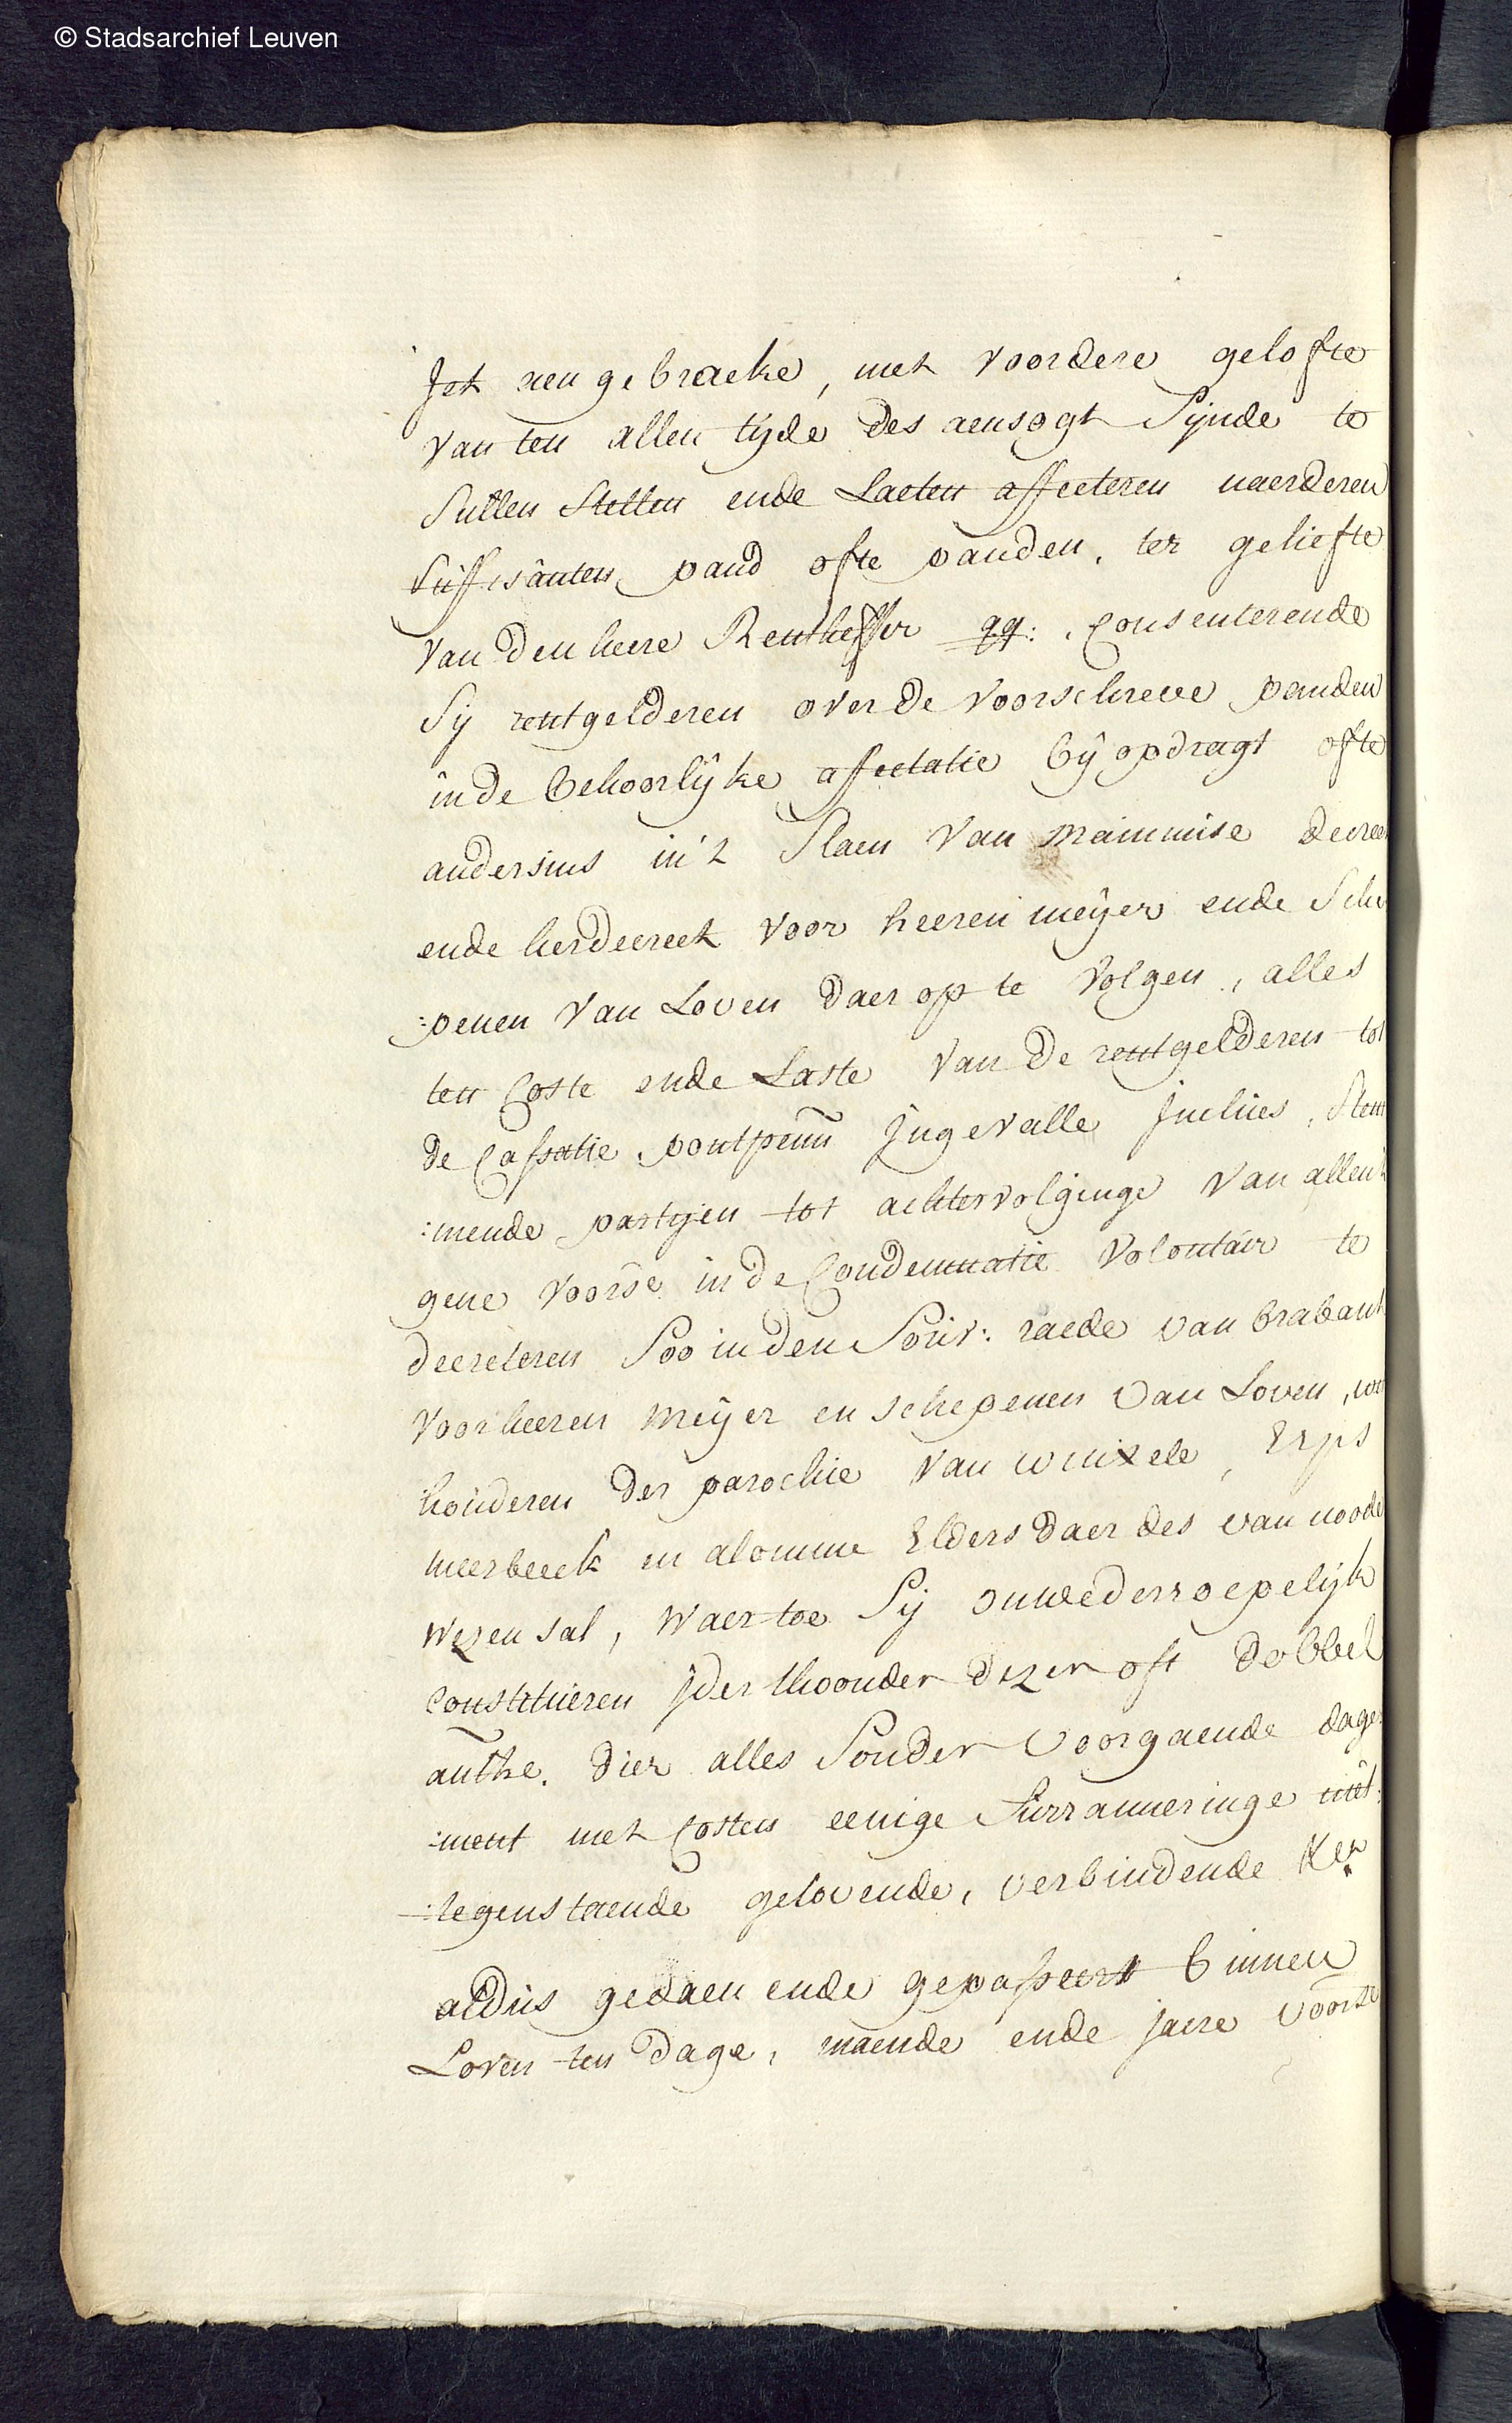 © Stadsarchief Leuven
Jet aen gebraeke, met voordere gelofte
van ten allen tijde des aensogt Sijnde te
Sullen Stellen ende Laeten affecteren naerderen
Suffisanten pand ofte panden, ter geliefte
van den heere Rentheffer qq: , Consenterende
Sij rentgelderen over de voorschreve panden
in de behoorlijke affectatie bij opdragt ofte
andersins in't Slaen van mainmise decreet
ende herdecreet voor heeren meijer ende Sche
:penen van Loven daer op te volgen, alles
ten Coste ende Laste van de rentgelderen tot
de Cassatie pontpenn jngevalle jncluis, Stem
:mende partijen tot achtervolginge van allen't
gene voorse in de Condemnatie volontair te
decreteren Soo in den Souv: raede van brabant
voor heeren meijer en schepenen van Loven,
houderen der parochie van wuizele, Erps
meerbeeck en alomme Elders daer des van noode
wezen sal, waer toe Sij onwederroepelijk
constitueren jder thoonder dezer oft dobbel
authe. dier alles Sonder voorgaende dage:
:ment met Costen eenige Surranneringe niet:
:tegenstaende gelovende, verbindende
aldus gedaen ende gepasseert binnen
Loven ten dage, maende ende jaere voorse